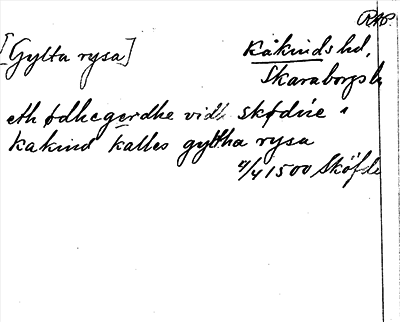 RAP.
[Gylta rysa] Kåkinds hd,
Skaraborgs l
eth ødhegerdhe vidh skødúe i
kakind kalles gyltha rysa
4/4 1500 Sköfde